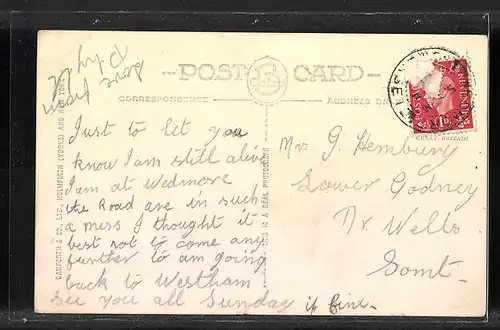 POST CARD
CORRESPONDENCE
ADDRESS ON
love from
Just to let you
know I am still alive
I am at Wedmore
the Road are in such
a mess I thought it
best not to come any
further so am going
back to Westham
See you all Sunday if fine.
Mrs G. Hembury
Lower Godney
Nr. Wells.
Somt.
BAMFORTH & CO., LTD., HOLMFIRTH (YORKS) AND NEW YORK
THIS IS A REAL PHOTOGRAPH